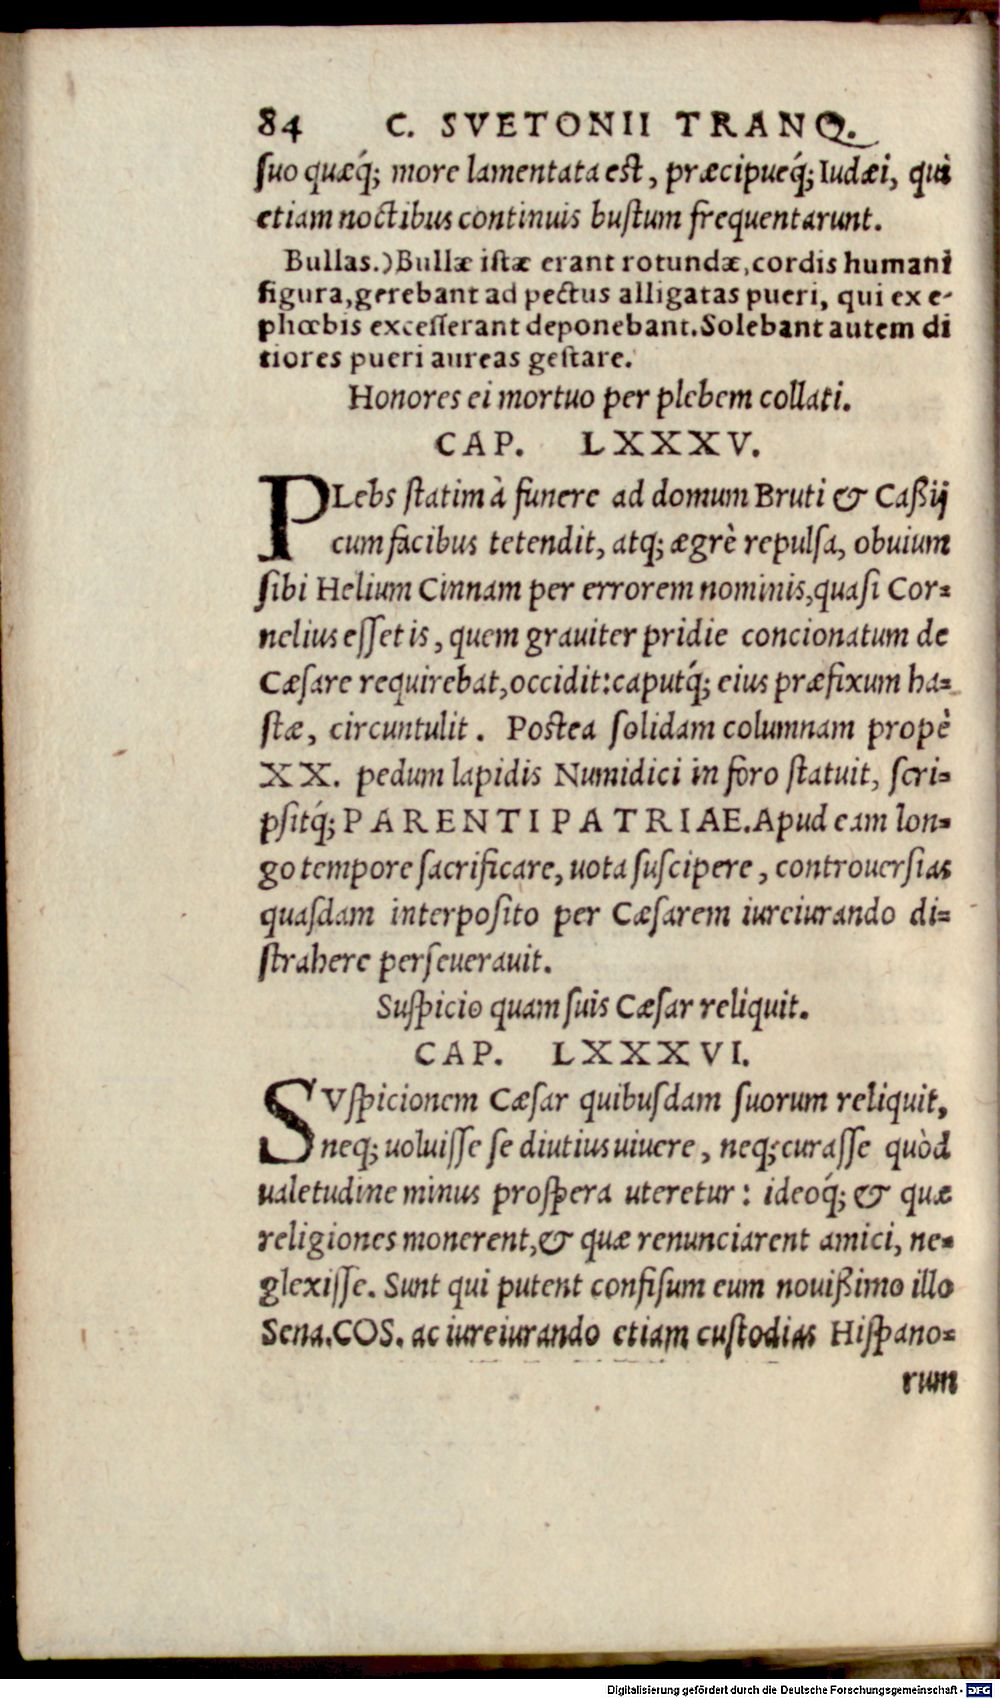 84 C. SVETONII TRANQ.
suo quæq́; more lamentata est, præcipueq́; Iudæi, qui
etiam noctibus continuis bustum frequentarunt.
Bullas.) Bullæ istæ erant rotundæ, cordis humani
figura, gerebant ad pectus alligatas pueri, qui ex e-
phœbis excesserant deponebant. Solebant autem di
tiores pueri aureas gestare.
Honores ei mortuo per plebem collati.
CAP. LXXXV.
PLebs statim à funere ad domum Bruti & Caßij
cum facibus tetendit, atq; ægrè repulsa, obuium
sibi Helium Cinnam per errorem nominis, quasi Cor-
nelius esset is, quem grauiter pridie concionatum de
Cæsare requirebat, occidit: caputq́; eius præfixum ha-
stæ, circuntulit. Postea solidam columnam propè
XX. pedum lapidis Numidici in foro statuit, scri-
psitq́; PARENTI PATRIAE. Apud eam lon-
go tempore sacrificare, uota suscipere, controuersias
quasdam interposito per Cæsarem iureiurando di-
strahere perseuerauit.
Suspicio quam suis Cæsar reliquit.
CAP. LXXXVI.
SVspicionem Cæsar quibusdam suorum reliquit,
neq; uoluisse se diutius uiuere, neq; curasse quòd
ualetudine minus prospera uteretur: ideoq́; & quæ
religiones monerent, & quæ renunciarent amici, ne-
glexisse. Sunt qui putent confisum eum nouißimo illo
Sena. COS. ac iureiurando etiam custodias Hispano-
rum
Digitalisierung gefördert durch die Deutsche Forschungsgemeinschaft - DFG